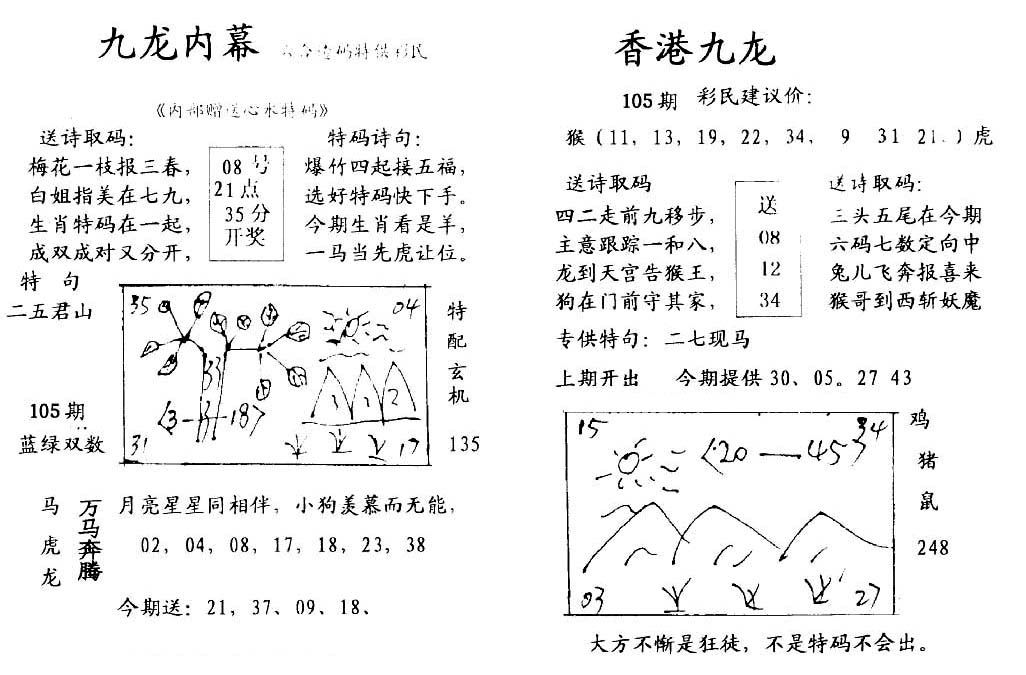 九龙内幕 六合透码特供彩民
《内部赠送心水特码》
送诗取码：
梅花一枝报三春，
白姐指美在七九，
生肖特码在一起，
成双成对又分开，
08号
21点
35分
开奖
特码诗句：
爆竹四起接五福，
选好特码快下手。
今期生肖看是羊，
一马当先虎让位。
特 句
二五君山
105期
蓝绿双数
35
04
33
3
18
1
1
2
31
17
特配玄机
135
马虎龙
万马奔腾
月亮星星同相伴，小狗羡慕而无能，
02，04，08，17，18，23，38
今期送：21，37、09、18、
香港九龙
105期 彩民建议价：
猴（11，13，19，22，34， 9 31 21.）虎
送诗取码
四二走前九移步，
主意跟踪一和八，
龙到天宫告猴王，
狗在门前守其家，
送
08
12
34
送诗取码：
三头五尾在今期
六码七数定向中
兔儿飞奔报喜来
猴哥到西斩妖魔
专供特句：二七现马
上期开出 今期提供30、05。27 43
15
34
20—45
03
27
鸡
猪
鼠
248
大方不惭是狂徒，不是特码不会出。